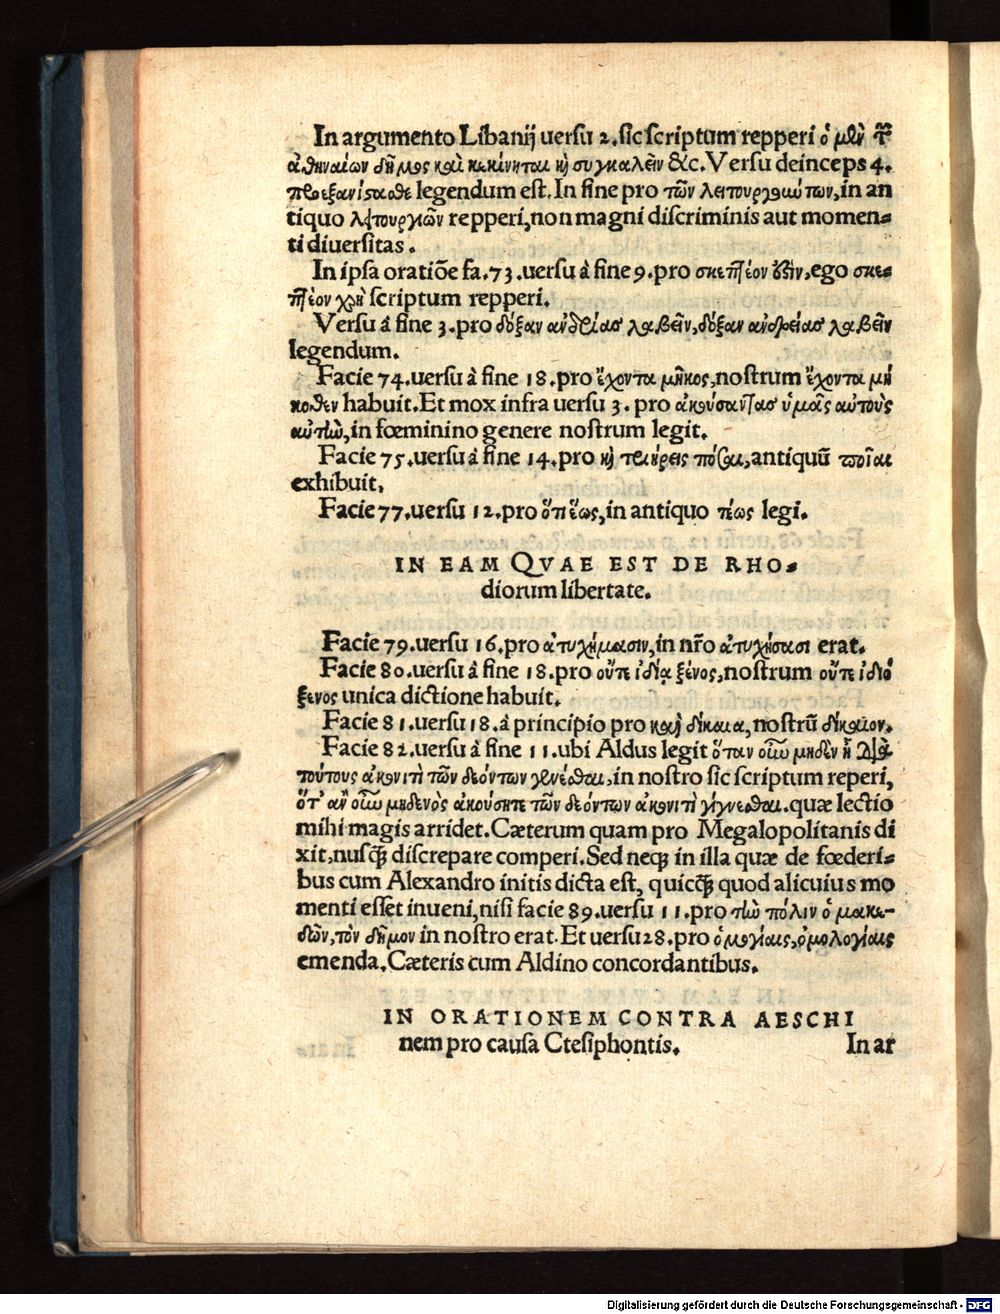 In argumento Libanij uersu 2. sic scriptum repperi ὁ μὲν τῶν
ἀθηναίων δῆμος καὶ κεκίνηται κὴ συγκαλεῖν &c. Versu deinceps 4.
προεξανίστασθε legendum est. In fine pro τῶν λειτουργούντων, in an
tiquo λειτουργιῶν repperi, non magni discriminis aut momen-
ti diuersitas.
In ipsa oratiõe fa. 73. uersu à fine 9. pro σκεπτέον ἐστὶν, ego σκε-
πτέον χρὴ scriptum repperi.
Versu à fine 3. pro δόξαν ἀνδρίας λαβεῖν, δόξαν ἀνδρείας λαβεῖν
legendum.
Facie 74. uersu à fine 18. pro ἔχοντα μῆκος, nostrum ἔχοντα μή
κοθεν habuit. Et mox infra uersu 3. pro ἀκούσαντας ὑμᾶς αὐτοὺς
αὐτὼ, in fœminino genere nostrum legit.
Facie 75. uersu à fine 14. pro κὴ τριήρεις πόσαι, antiquũ ποῖαι
exhibuit.
Facie 77. uersu 12. pro ὅτι ἕως, in antiquo τέως legi.
IN EAM QVAE EST DE RHO-
diorum libertate.
Facie 79. uersu 16. pro ἀτυχήμασιν, in nr̃o ἀτυχήσασι erat.
Facie 80. uersu à fine 18. pro οὔτε ἰδίᾳ ξένος, nostrum οὔτε ἰδιό
ξενος unica dictione habuit.
Facie 81. uersu 18. à principio pro καὶ δίκαια, nostrũ δίκαιον.
Facie 82. uersu à fine 11. ubi Aldus legit ὅταν οὖν μηδὲν ᾖ διὰ
τούτους ἀκονιτὶ τῶν δεόντων γενέσθαι, in nostro sic scriptum reperi,
ὅτ᾽ ἂν οὖν μηδενὸς ἀκούσητε τῶν δεόντων ἀκονιτὶ γίγνεσθαι. quæ lectio
mihi magis arridet. Cæterum quam pro Megalopolitanis di
xit, nusq̃ discrepare comperi. Sed neq; in illa quæ de fœderi-
bus cum Alexandro initis dicta est, quicq̃ quod alicuius mo
menti esset inueni, nisi facie 89. uersu 11. pro τὴν πόλιν ὁ μακε-
δὼν, τὸν δῆμον in nostro erat. Et uersu 28. pro ὁμογίαις, ὁμολογίαις
emenda. Cæteris cum Aldino concordantibus.
IN ORATIONEM CONTRA AESCHI
nem pro causa Ctesiphontis. In ar
Digitalisierung gefördert durch die Deutsche Forschungsgemeinschaft - DFG